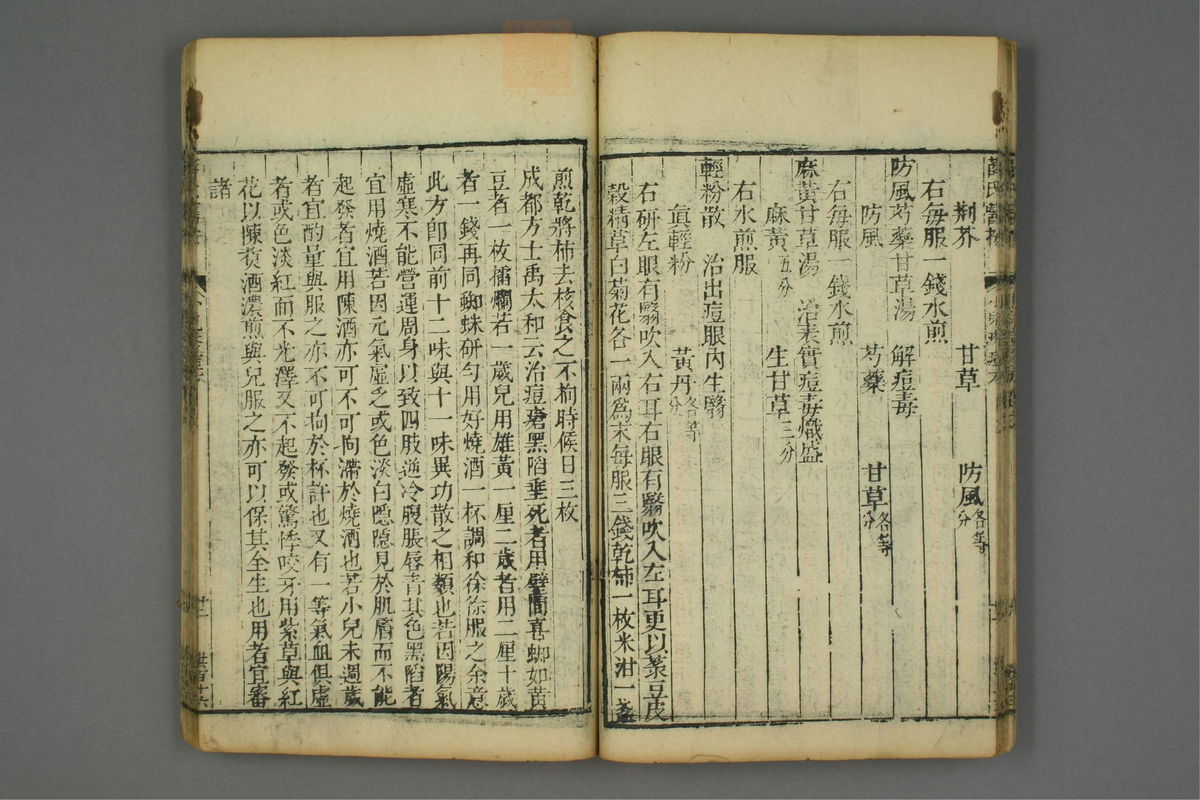 荆芥 甘草 防風各等分
右每服一錢水煎
防風芍藥甘草湯 解痘毒
防風 芍藥 甘草各等分
右每服一錢水煎
麻黃甘草湯 治表實痘毒熾盛
麻黃五分 生甘草三分
右水煎服
輕粉散 治出痘眼內生翳
眞輕粉 黃丹各等分
右研左眼有翳吹入右耳右眼有翳吹入左耳更以菉豆皮
穀精草白菊花各一兩爲末每服三錢乾柿一枚米泔一盞
煎乾將柿去核食之不枸時候日三枚
成都方士禹太和云治痘瘡黑陷垂死者用壁間喜蜘如黃
豆者一枚擂爛若一歲兒用雄黃一厘二歲者用二厘十歲
者一錢再同蜘蛛研勻用好燒酒一杯調和徐徐服之余意
此方卽同前十二味與十一味異功散之相類也若因陽氣
虛寒不能營運周身以致四肢逆冷腹脹唇青其色黑陷者
宜用燒酒若因元氣虛乏或色淡白隱隱見於肌膚而不能
起發者宜用陳酒亦可不可拘滯於燒酒也若小兒未週歲
者宜酌量與服之亦不可拘於杯許也又有一等氣血俱虛
者或色淡紅而不光澤又不起發或驚悸咬牙用紫草與紅
花以陳酒濃煎與兒服之亦可以保其全生也用者宜審
諸